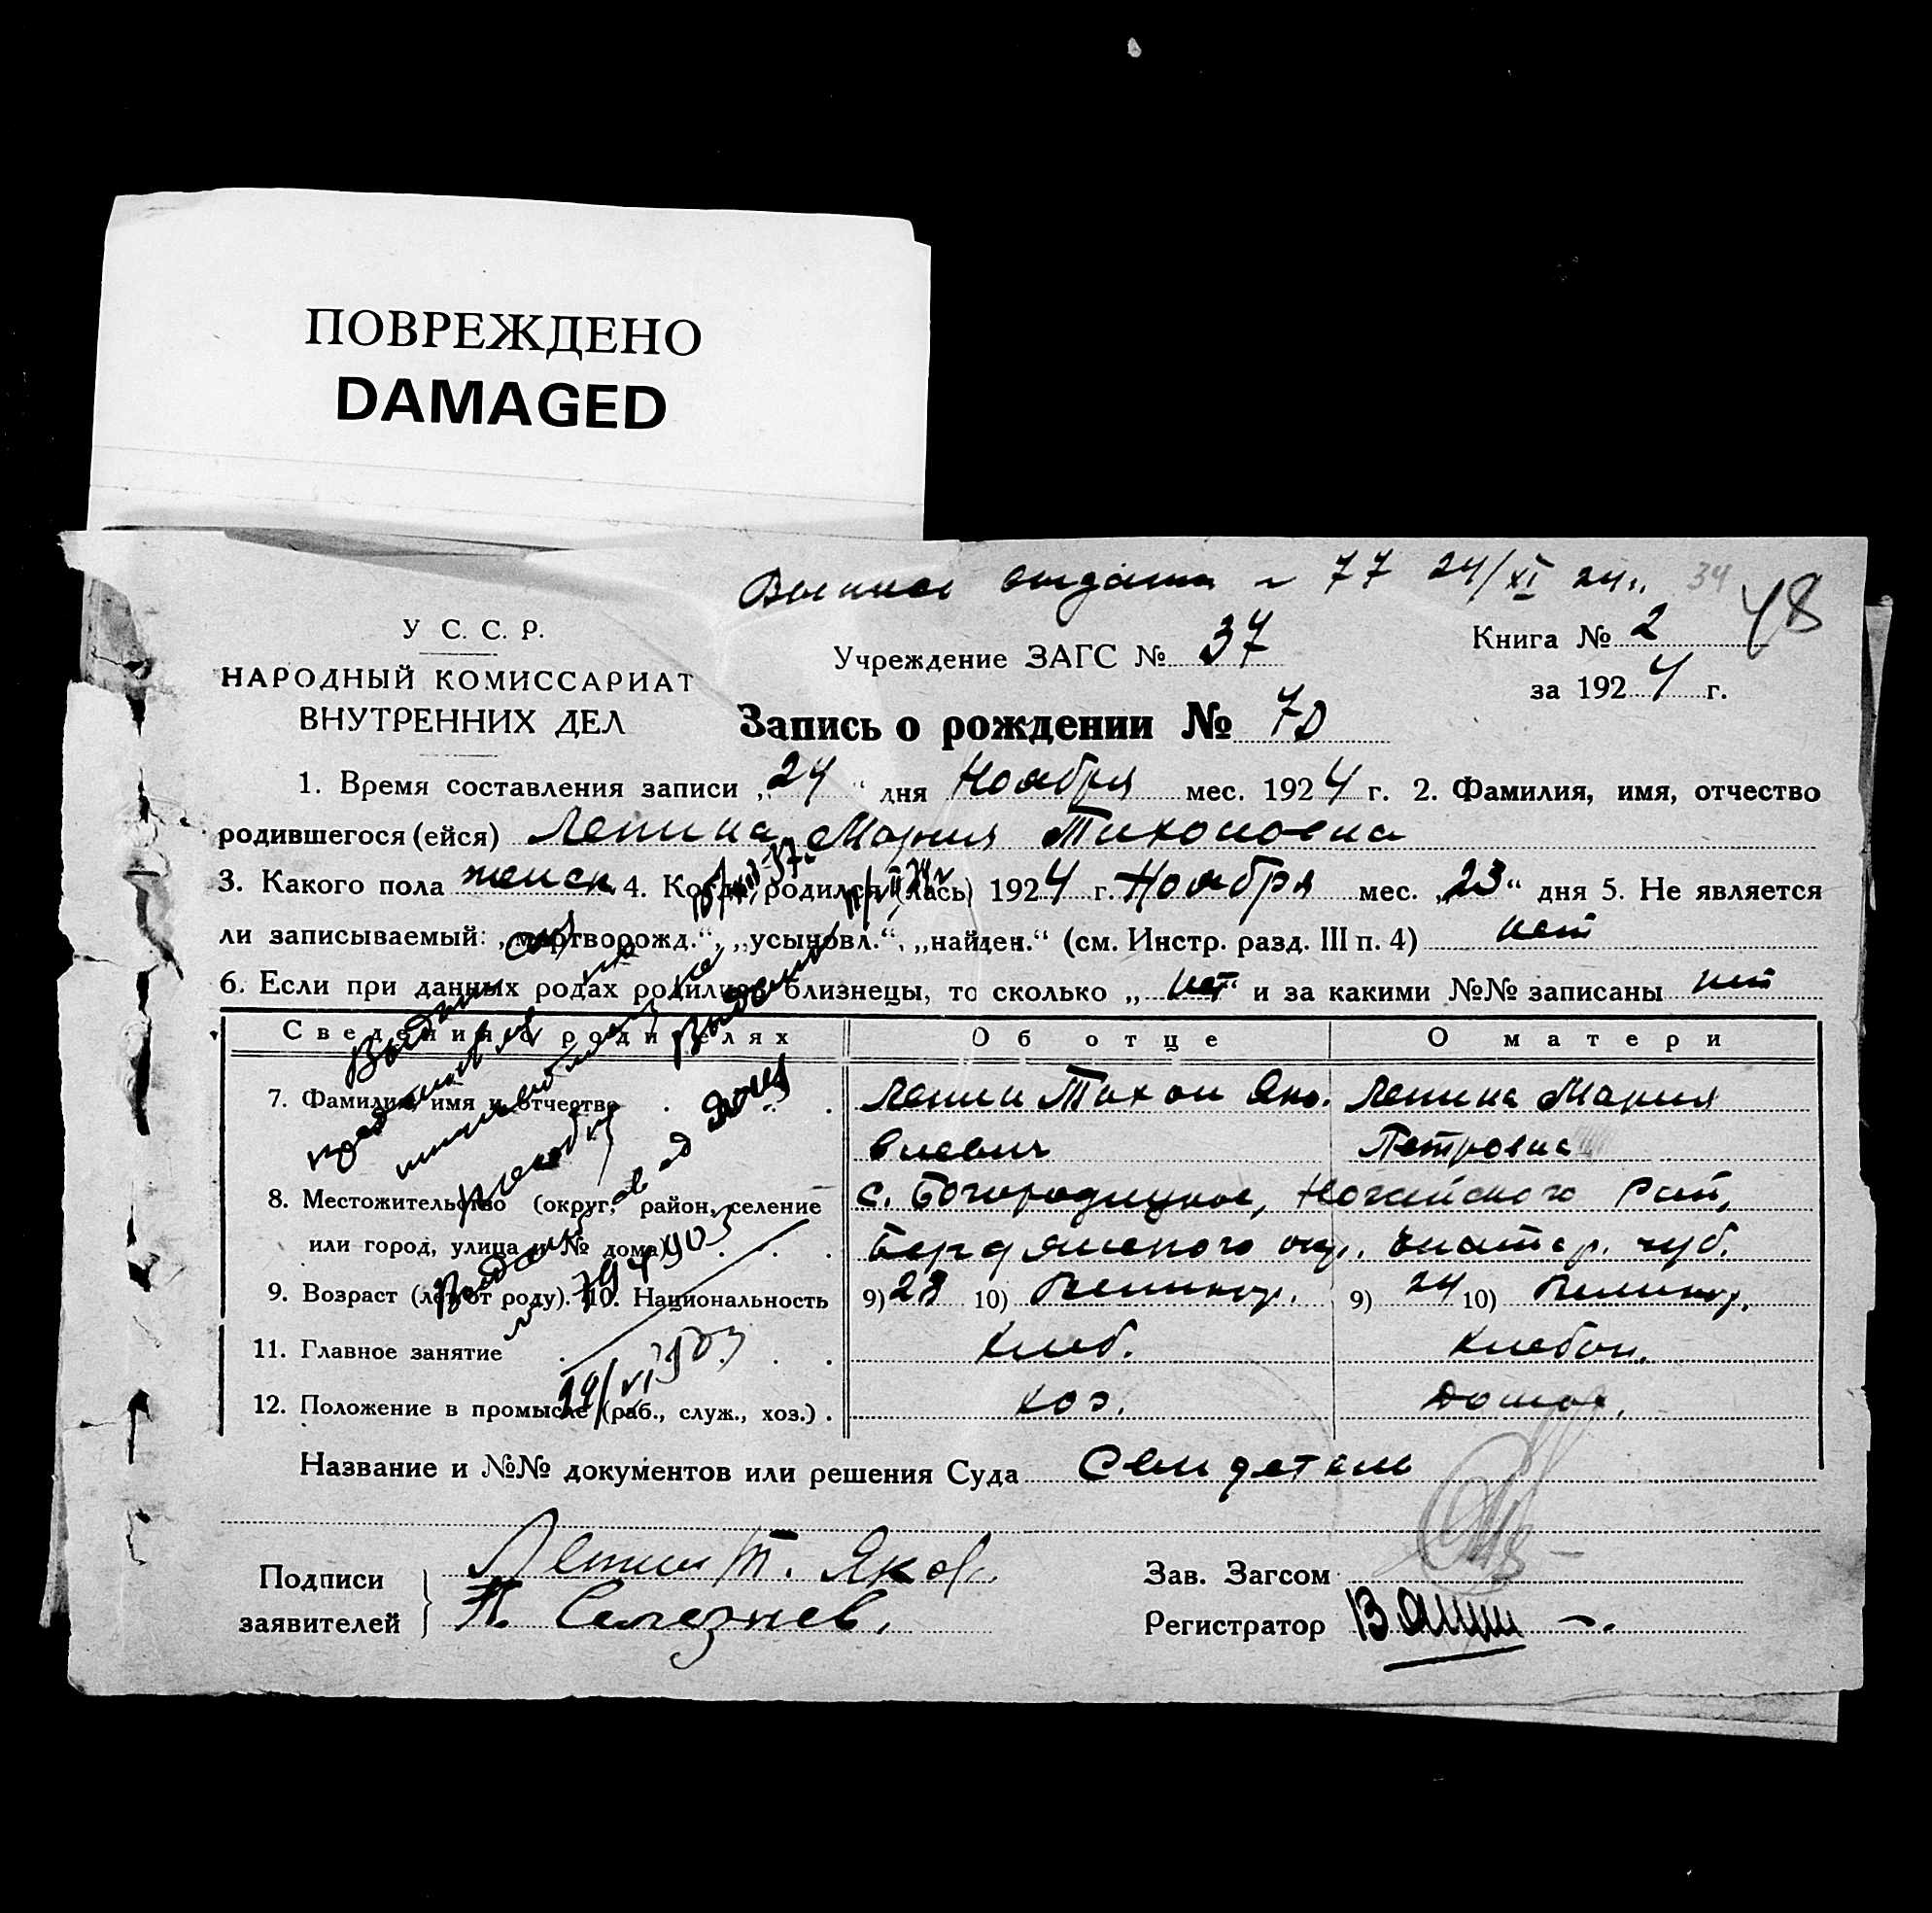 ПОВРЕЖДЕНО
DAMAGED
77 24/XI 24 34
48
У С. С. Р.
НАРОДНЫЙ КОМИССАРИАТ
ВНУТРЕННИХ ДЕЛ
Учреждение ЗАГС № 37
Книга № 2
за 1924 г.
Запись о рождении № 70
1. Время составления записи „24“ дня Ноября мес. 1924 г. 2. Фамилия, имя, отчество
родившегося (ейся) Лепина Мария Тихоновна
3. Какого пола женск. 4. Когда родился (лась) 1924 г. Ноября мес. „23“ дня 5. Не является
ли записываемый: „мертворожд.“, „усыновл.“, „найден.“ (см. Инстр. разд. III п. 4) нет
6. Если при данных родах родились близнецы, то сколько „нет“ и за какими №№ записаны нет
Сведения о родителях Об отце О матери
7. Фамилия, имя и отчество Лепин Тихон Яко- Лепина Мария
влевич Петровна
8. Местожительство (округ, район, селение с. Богородицкое, Ногайского Рай,
или город, улица и № дома) Бердянского окр. Екатер. губ.
9. Возраст (лет от роду). 10. Национальность 9) 28 10) Великор. 9) 24 10) Великор.
11. Главное занятие Хлеб. Хлебоп.
12. Положение в промысле (раб., служ., хоз.) хоз. Домох.
Название и №№ документов или решения Суда Свидетели
Подписи заявителей Лепин Т. Яков.
П. Селезнев.
Зав. Загсом
Регистратор